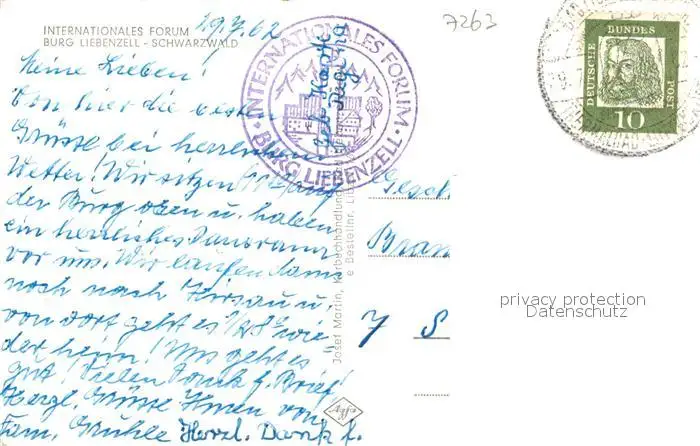 INTERNATIONALES FORUM
BURG LIEBENZELL - SCHWARZWALD
29.7.62
7263
INTERNATIONALES FORUM
BURG LIEBENZELL
DEUTSCHE BUNDESPOST
10
Meine Lieben!
Von hier die besten
Grüsse bei herrlichem
Wetter! Wir sitzen auf
der Burg oben u. haben
ein herrliches Panorama
vor uns. Wir laufen dann
noch nach Hirsau u.
von dort geht es wie-
der heim! Uns geht es
gut! Vielen Dank f. Brief!
Herzl. Grüsse Ihnen von
Fam. Gühle Herzl. Dank f.
Josef Martin, Kartenhandlung
Bestellnr.
7 S
Agfa
privacy protection
Datenschutz